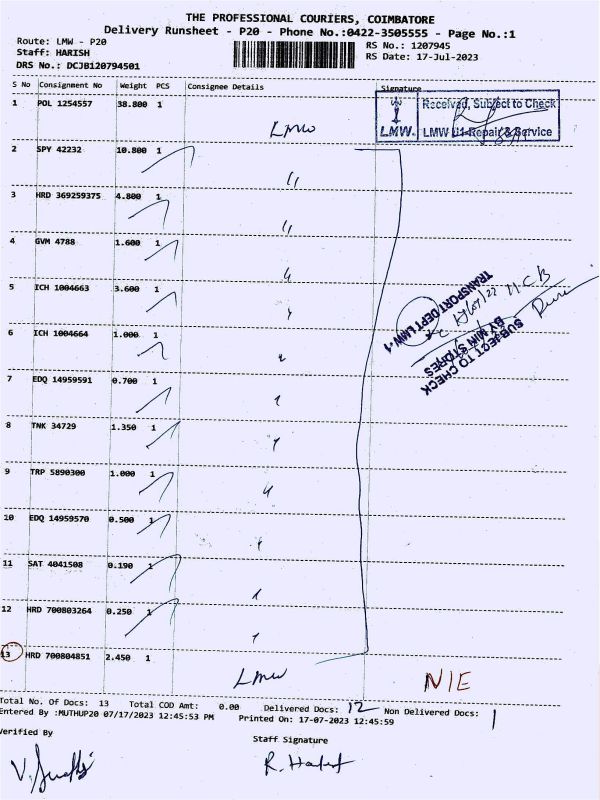 THE PROFESSIONAL COURIERS, COIMBATORE
Delivery Runsheet - P20 - Phone No.:0422-3505555 - Page No.:1
Route: LMW - P20
Staff: HARISH
DRS No.: DCJB120794501
RS No.: 1207945
RS Date: 17-Jul-2023
S No Consignment No Weight PCS Consignee Details Signature
1 POL 1254557 38.800 1 LMW
Received, Subject to Check
LMW. LMW U1-Repair & Service
2 SPY 42232 10.800 1 "
3 HRD 369259375 4.800 1 "
4 GVM 4788 1.600 1 "
5 ICH 1004663 3.600 1 "
TRANSPORT DEPT LMW-1
BY MW STORES
SUBJECT TO CHECK
6 ICH 1004664 1.000 1 "
7 EDQ 14959591 0.700 1 "
8 TNK 34729 1.350 1 "
9 TRP 5890300 1.000 1 "
10 EDQ 14959570 0.500 1 "
11 SAT 4041508 0.190 1 "
12 HRD 700803264 0.250 1 "
13 HRD 700804851 2.450 1 LMW
N/E
Total No. Of Docs: 13 Total COD Amt: 0.00 Delivered Docs: 12 Non Delivered Docs: 1
Entered By :MUTHUP20 07/17/2023 12:45:53 PM Printed On: 17-07-2023 12:45:59
Verified By
Staff Signature